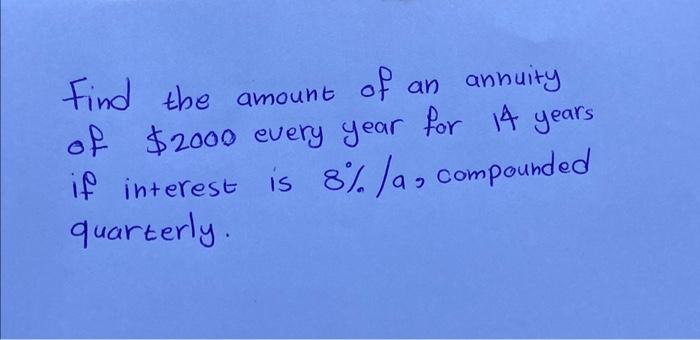 Find the amount of an annuity
of $2000 every year for 14 years
if interest is 8%/a, compounded
quarterly.